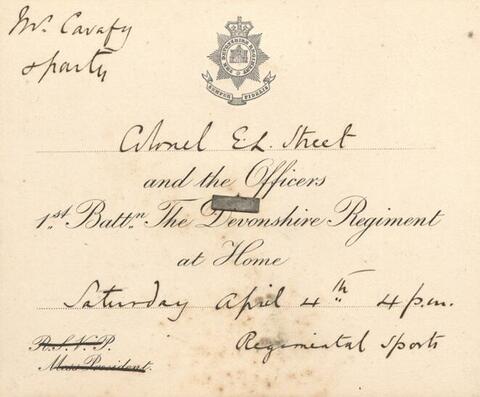 Mr. Cavafy
& party
THE DEVONSHIRE REGIMENT
SEMPER FIDELIS
Colonel E.L. Street
and the Officers
1st. Battn. The Devonshire Regiment
at Home
Saturday April 4th 4 p.m.
R.S.V.P. Regimental Sports
Mess President.